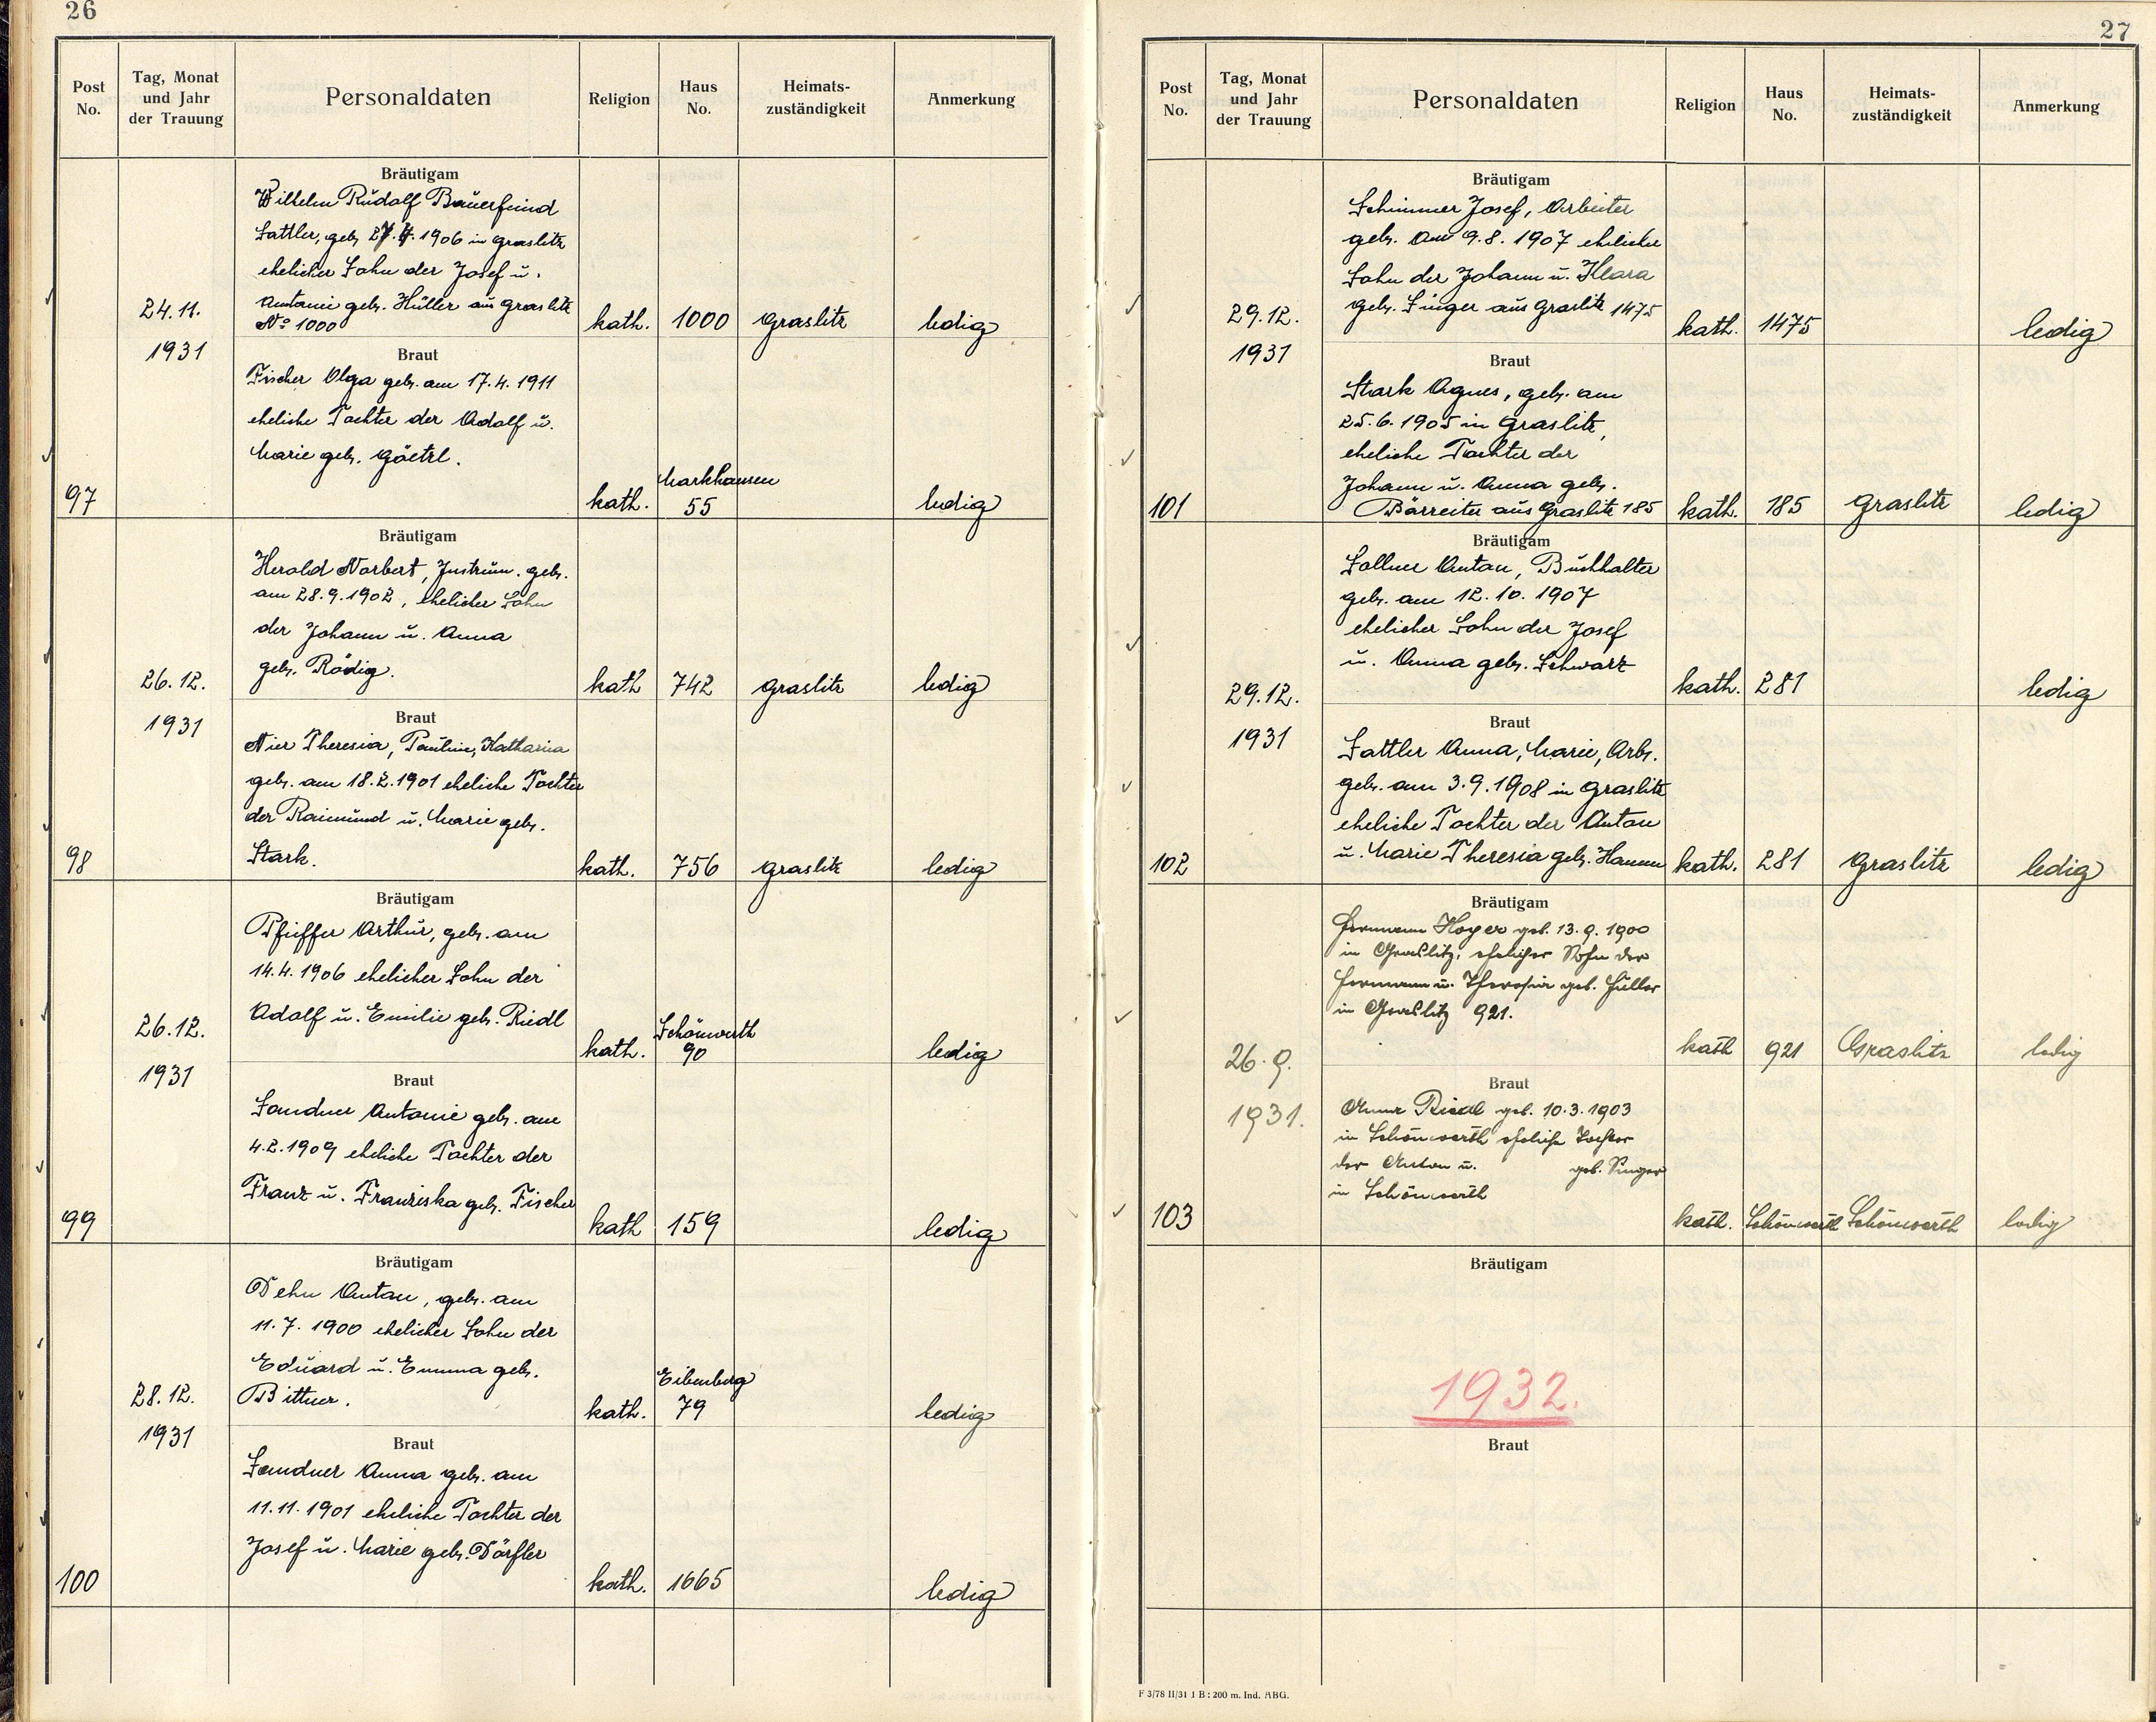 26
Post No.
Tag, Monat und Jahr der Trauung
Personaldaten
Religion
Haus No.
Heimats-zuständigkeit
Anmerkung
Bräutigam
Wilhelm Rudolf Bauerfeind
Sattler, geb. 27.4.1906 in Graslitz
ehelicher Sohn der Josef u.
Antonie geb. Hüller aus Graslitz
No 1000
24.11.
1931
kath. 1000 Graslitz ledig
Braut
Fischer Olga geb. am 17.4.1911
eheliche Tochter der Adolf u.
Marie geb. Götzl.
97
kath. Markhausen 55 ledig
Bräutigam
Herold Norbert, Instrum. geb.
am 28.9.1902, ehelicher Sohn
der Johann u. Anna
geb. Rödig.
26.12.
1931
kath 742 Graslitz ledig
Braut
Nier Theresia, Pauline, Katharina
geb. am 18.2.1901 eheliche Tochter
der Raimund u. Marie geb.
Stark.
98
kath. 756 Graslitz ledig
Bräutigam
Pfeiffer Arthur, geb. am
14.4.1906 ehelicher Sohn der
Adolf u. Emilie geb. Riedl
26.12.
1931
kath. Schönwerth 90 ledig
Braut
Sandner Antonie geb. am
4.2.1909 eheliche Tochter der
Franz u. Franziska geb. Fischer
99
kath 159 ledig
Bräutigam
Dehn Anton, geb. am
11.7.1900 ehelicher Sohn der
Eduard u. Emma geb.
Bittner.
28.12.
1931
kath. Eibenberg 79 ledig
Braut
Sandner Anna geb. am
11.11.1901 eheliche Tochter der
Josef u. Marie geb. Dörfler
100
kath. 1665 ledig
27
Post No.
Tag, Monat und Jahr der Trauung
Personaldaten
Religion
Haus No.
Heimats-zuständigkeit
Anmerkung
Bräutigam
Schimmer Josef, Arbeiter
geb. am 9.8.1907 ehelicher
Sohn der Johann u. Klara
geb. Singer aus Graslitz 1475
29.12.
1931
kath. 1475 ledig
Braut
Stark Agnes, geb. am
25.6.1905 in Graslitz,
eheliche Tochter der
Johann u. Anna geb.
Bärreiter aus Graslitz 185
101
kath. 185 Graslitz ledig
Bräutigam
Sollner Anton, Buchhalter
geb. am 12.10.1907
ehelicher Sohn der Josef
u. Anna geb. Schwarz
29.12.
1931
kath. 281 ledig
Braut
Sattler Anna, Marie, Arb.
geb. am 3.9.1908 in Graslitz
eheliche Tochter der Anton
u. Marie Theresia geb. Hamm
102
kath. 281 Graslitz ledig
Bräutigam
Hermann Hoyer geb. 13.9.1900
in Graslitz, ehelicher Sohn der
Hermann u. Theresia geb. Hüller
in Graslitz 921.
26.9.
1931.
kath 921 Graslitz ledig
Braut
Anna Riedl geb. 10.3.1903
in Schönwerth eheliche Tochter
der Anton u. geb. Singer
in Schönwerth
103
kath. Schönwerth Schönwerth ledig
Bräutigam
1932.
Braut
F 3/78 II/31 1 B : 200 m. Ind. ABG.